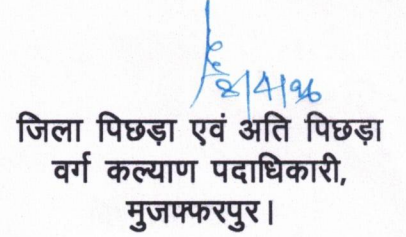 8/4/26
जिला पिछड़ा एवं अति पिछड़ा
वर्ग कल्याण पदाधिकारी,
मुजफ्फरपुर।